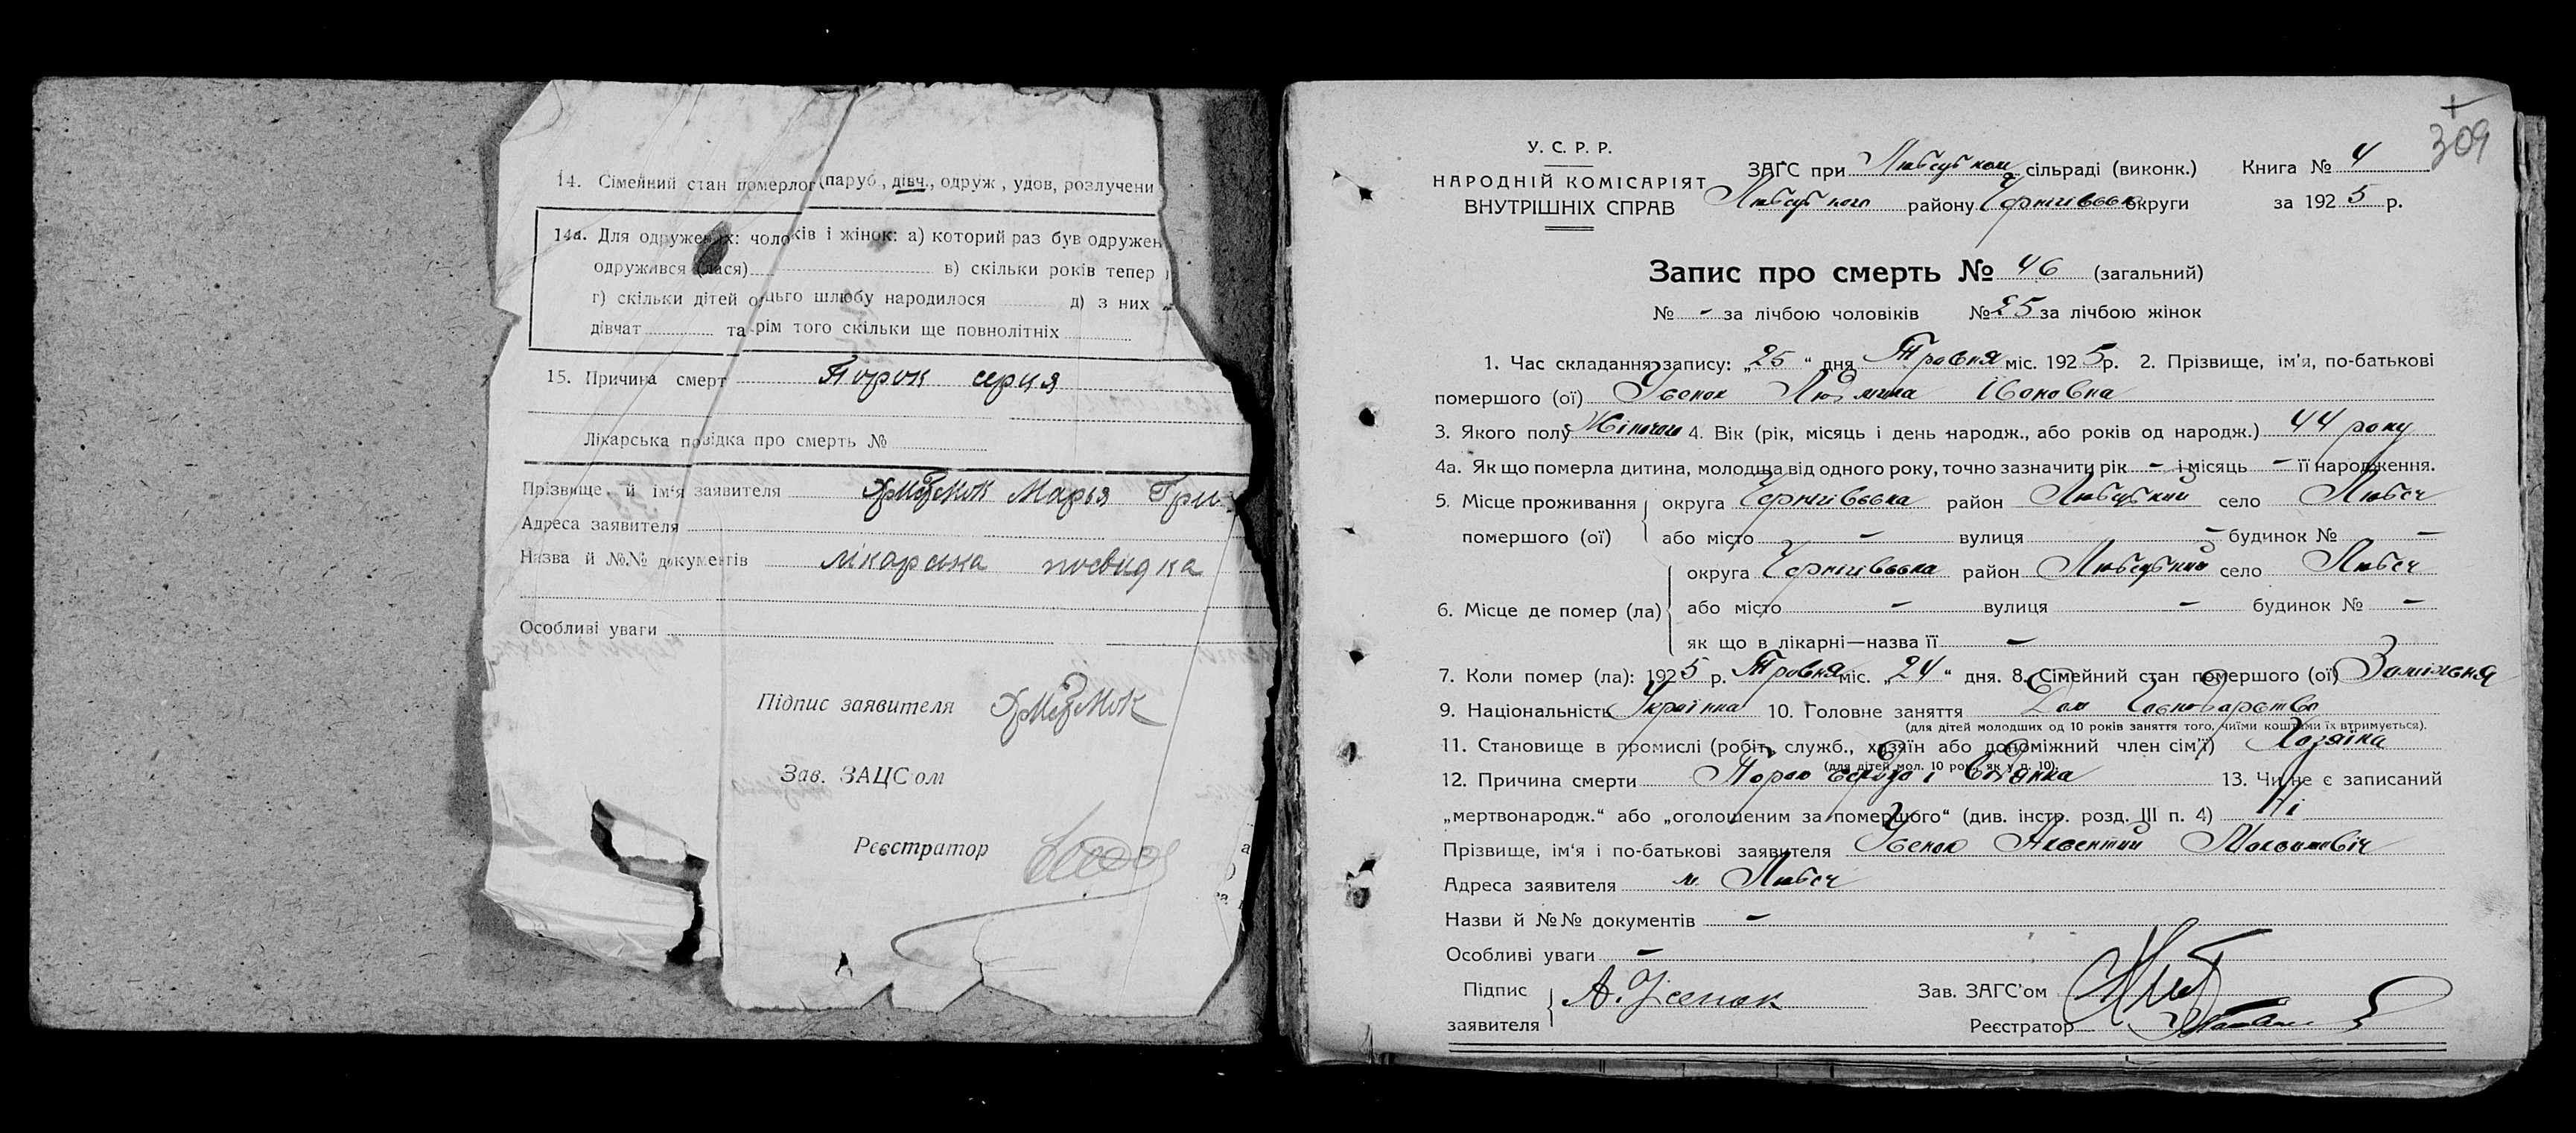 14. Сімейний стан померлог (паруб., дівч., одруж., удов, розлучени
14а. Для одружених: чолоків і жінок: а) которий раз був одружен
одружився (лася) в) скільки років тепер
г) скільки дітей о цього шлюбу народилося д) з них
дівчат та рім того скільки ще повнолітніх
15. Причина смерт Порок серця
Лікарська повідка про смерть №
Прізвище й ім'я заявителя Марья Гри
Адреса заявителя
Назва й №№ документів лікарська посвидка
Особливі уваги
Підпис заявителя
Зав. ЗАЦСом
Реєстратор
309
У. С. Р. Р.
НАРОДНІЙ КОМІСАРІЯТ
ВНУТРІШНІХ СПРАВ
ЗАГС при Любецьком сільраді (виконк.) Книга № 4
Любецького району Чернігівськ округи за 1925 р.
Запис про смерть № 46 (загальний)
№ - за лічбою чоловіків № 25 за лічбою жінок
1. Час складання запису: „25“ дня Травня міс. 1925 р. 2. Прізвище, ім'я, по-батькові
помершого (ої) Усенок Людмила Івановна
3. Якого полу Жіночого 4. Вік (рік, місяць і день народж., або років од народж.) 44 року
4а. Як що померла дитина, молодща від одного року, точно зазначити рік - і місяць - її народження.
5. Місце проживання помершого (ої) округа Чернігівська район Любецький село Любеч
або місто - вулиця - будинок № -
6. Місце де помер (ла) округа Чернігівська район Любецький село Любеч
або місто - вулиця - будинок № -
як що в лікарні—назва її -
7. Коли помер (ла): 1925 р. Травня міс. „24“ дня. 8. Сімейний стан помершого (ої) Заміжня
9. Національність Українка 10. Головне заняття Дом
(для дітей молодших од 10 років заняття того, чиїми коштами їх втримується).
11. Становище в промислі (робітн., служб., хазяїн або допоміжний член сім'ї) Хозяїка
(для дітей мол. 10 рок., як у п. 10).
12. Причина смерти Порок серця і 13. Чи не є записаний
„мертвонародж.“ або „оголошеним за помершого“ (див. інстр. розд. III п. 4) Ні
Прізвище, ім'я і по-батькові заявителя Усенок Авсентий Максимовіч
Адреса заявителя м. Любеч
Назви й №№ документів -
Особливі уваги -
Підпис заявителя А. Усенок
Зав. ЗАГС'ом
Реєстратор